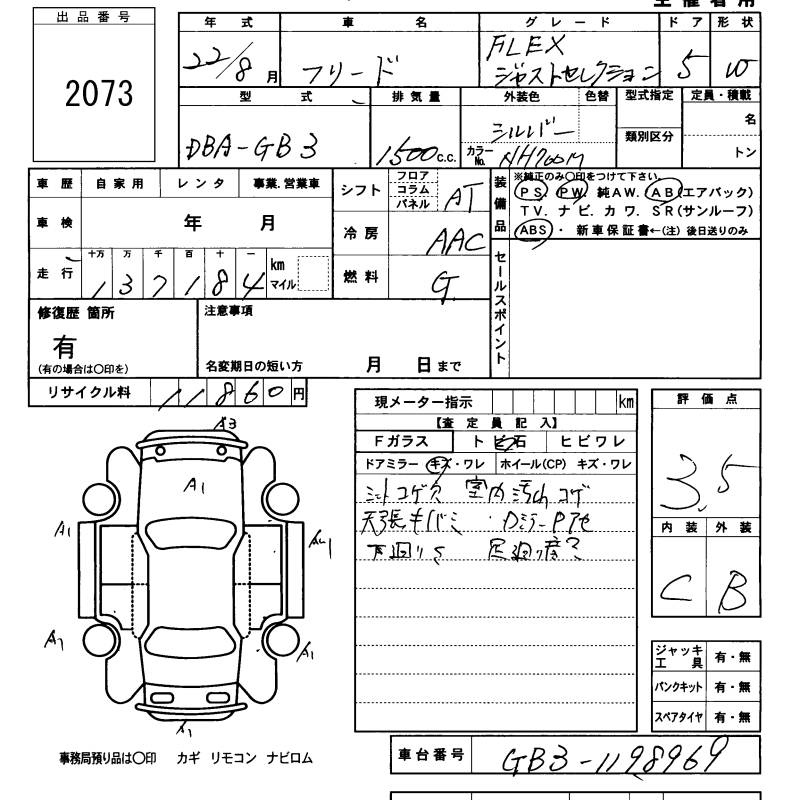 出品番号
2073
年式 車名 グレード ドア 形状
22/8月 フリード FLEX ジャストセレクション 5 W
型式 排気量 外装色 色替 型式指定 定員・積載
DBA-GB3 1500c.c. シルバー カラーNo. NH700M 類別区分 名 トン
車歴 自家用 レンタ 事業.営業車
車検 年 月
走行 十万 万 千 百 十 一 km マイル
137184
シフト フロア コラム パネル AT
冷房 AAC
燃料 G
装備品
※純正のみ○印をつけて下さい。
PS PW 純AW. AB(エアバック)
TV. ナビ. カワ. SR(サンルーフ)
ABS・ 新車保証書←(注)後日送りのみ
セールスポイント
修復歴 箇所
有
(有の場合は○印を)
注意事項
名変期日の短い方 月 日まで
リサイクル料 11860円
現メーター指示 km
【査定員記入】
Fガラス トビ石 ヒビワレ
ドアミラー キズ・ワレ ホイール(CP) キズ・ワレ
シートコゲ穴 室内汚れ コゲ
天張キバミ ・Dミラー
下廻りS
評価点
3.5
内装 外装
C B
A3
A1
A1
A1
A1
ジャッキ工具 有・無
パンクキット 有・無
スペアタイヤ 有・無
事務局預り品は○印 カギ リモコン ナビロム
車台番号 GB3-1198969